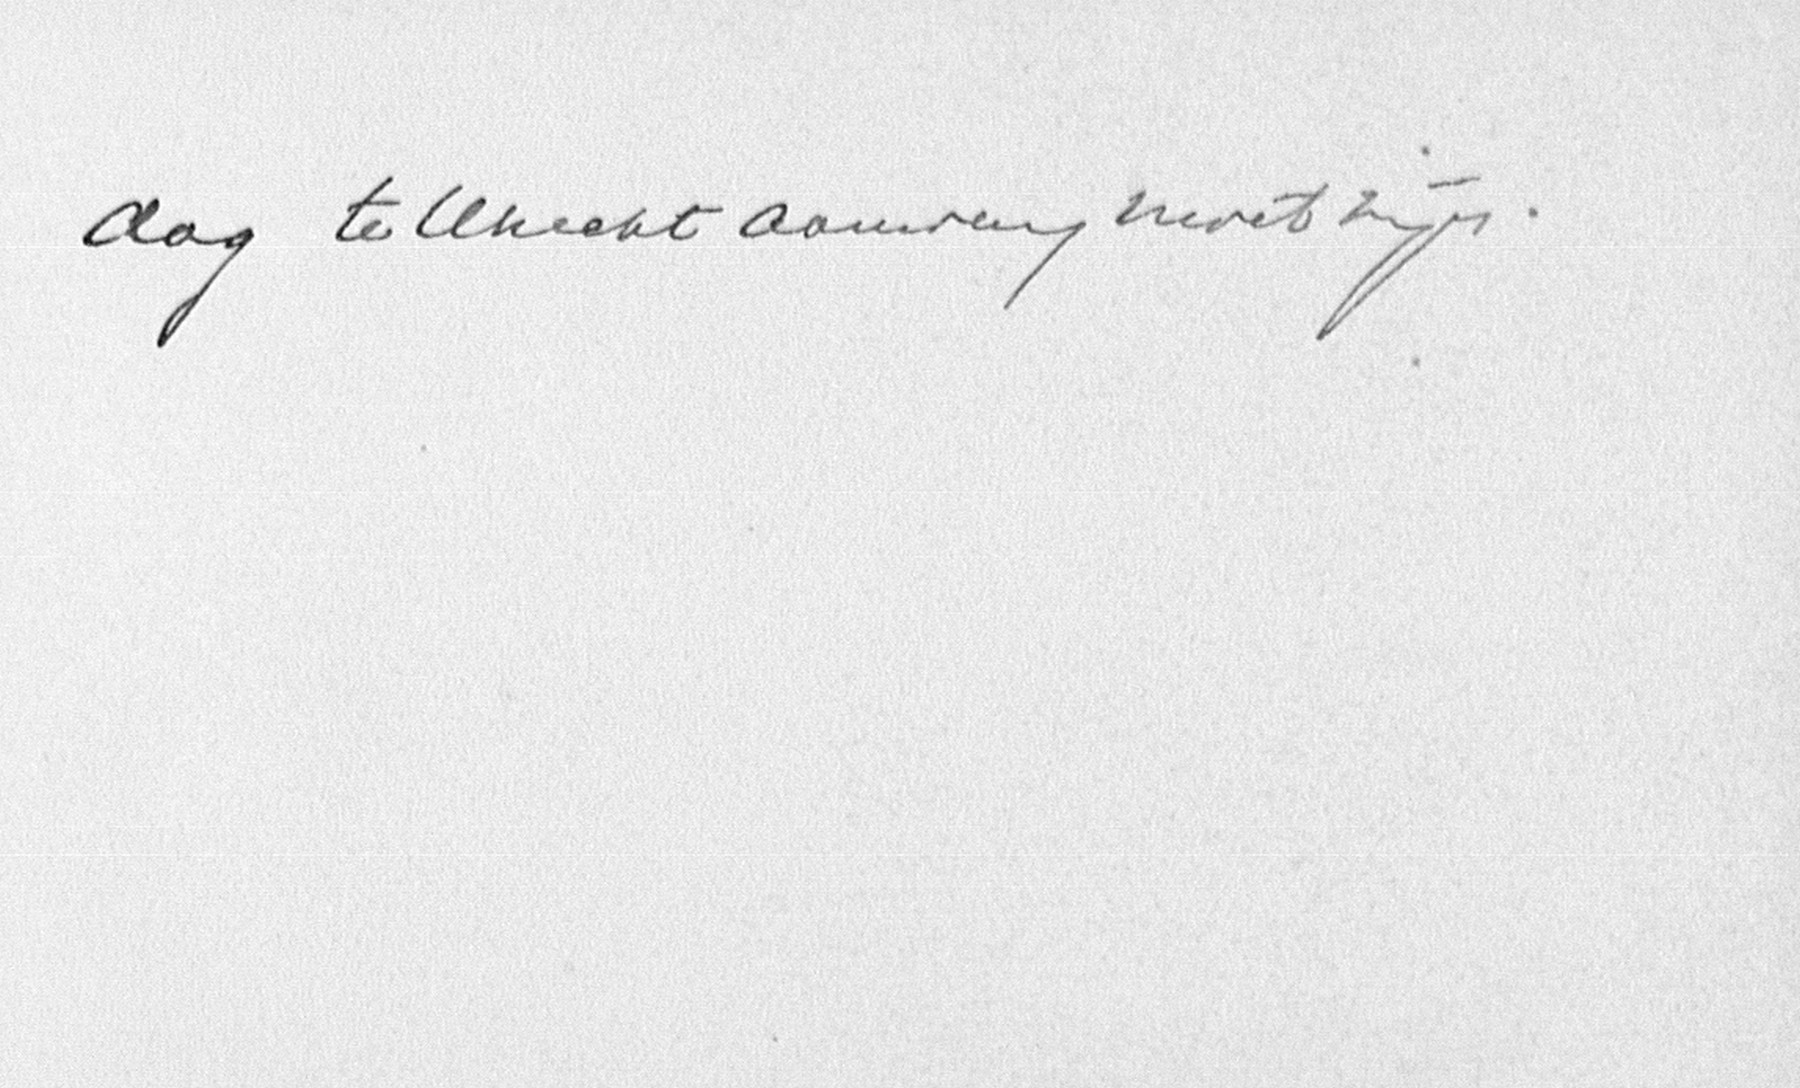 dag te Utrecht aanwezig moet zijn.